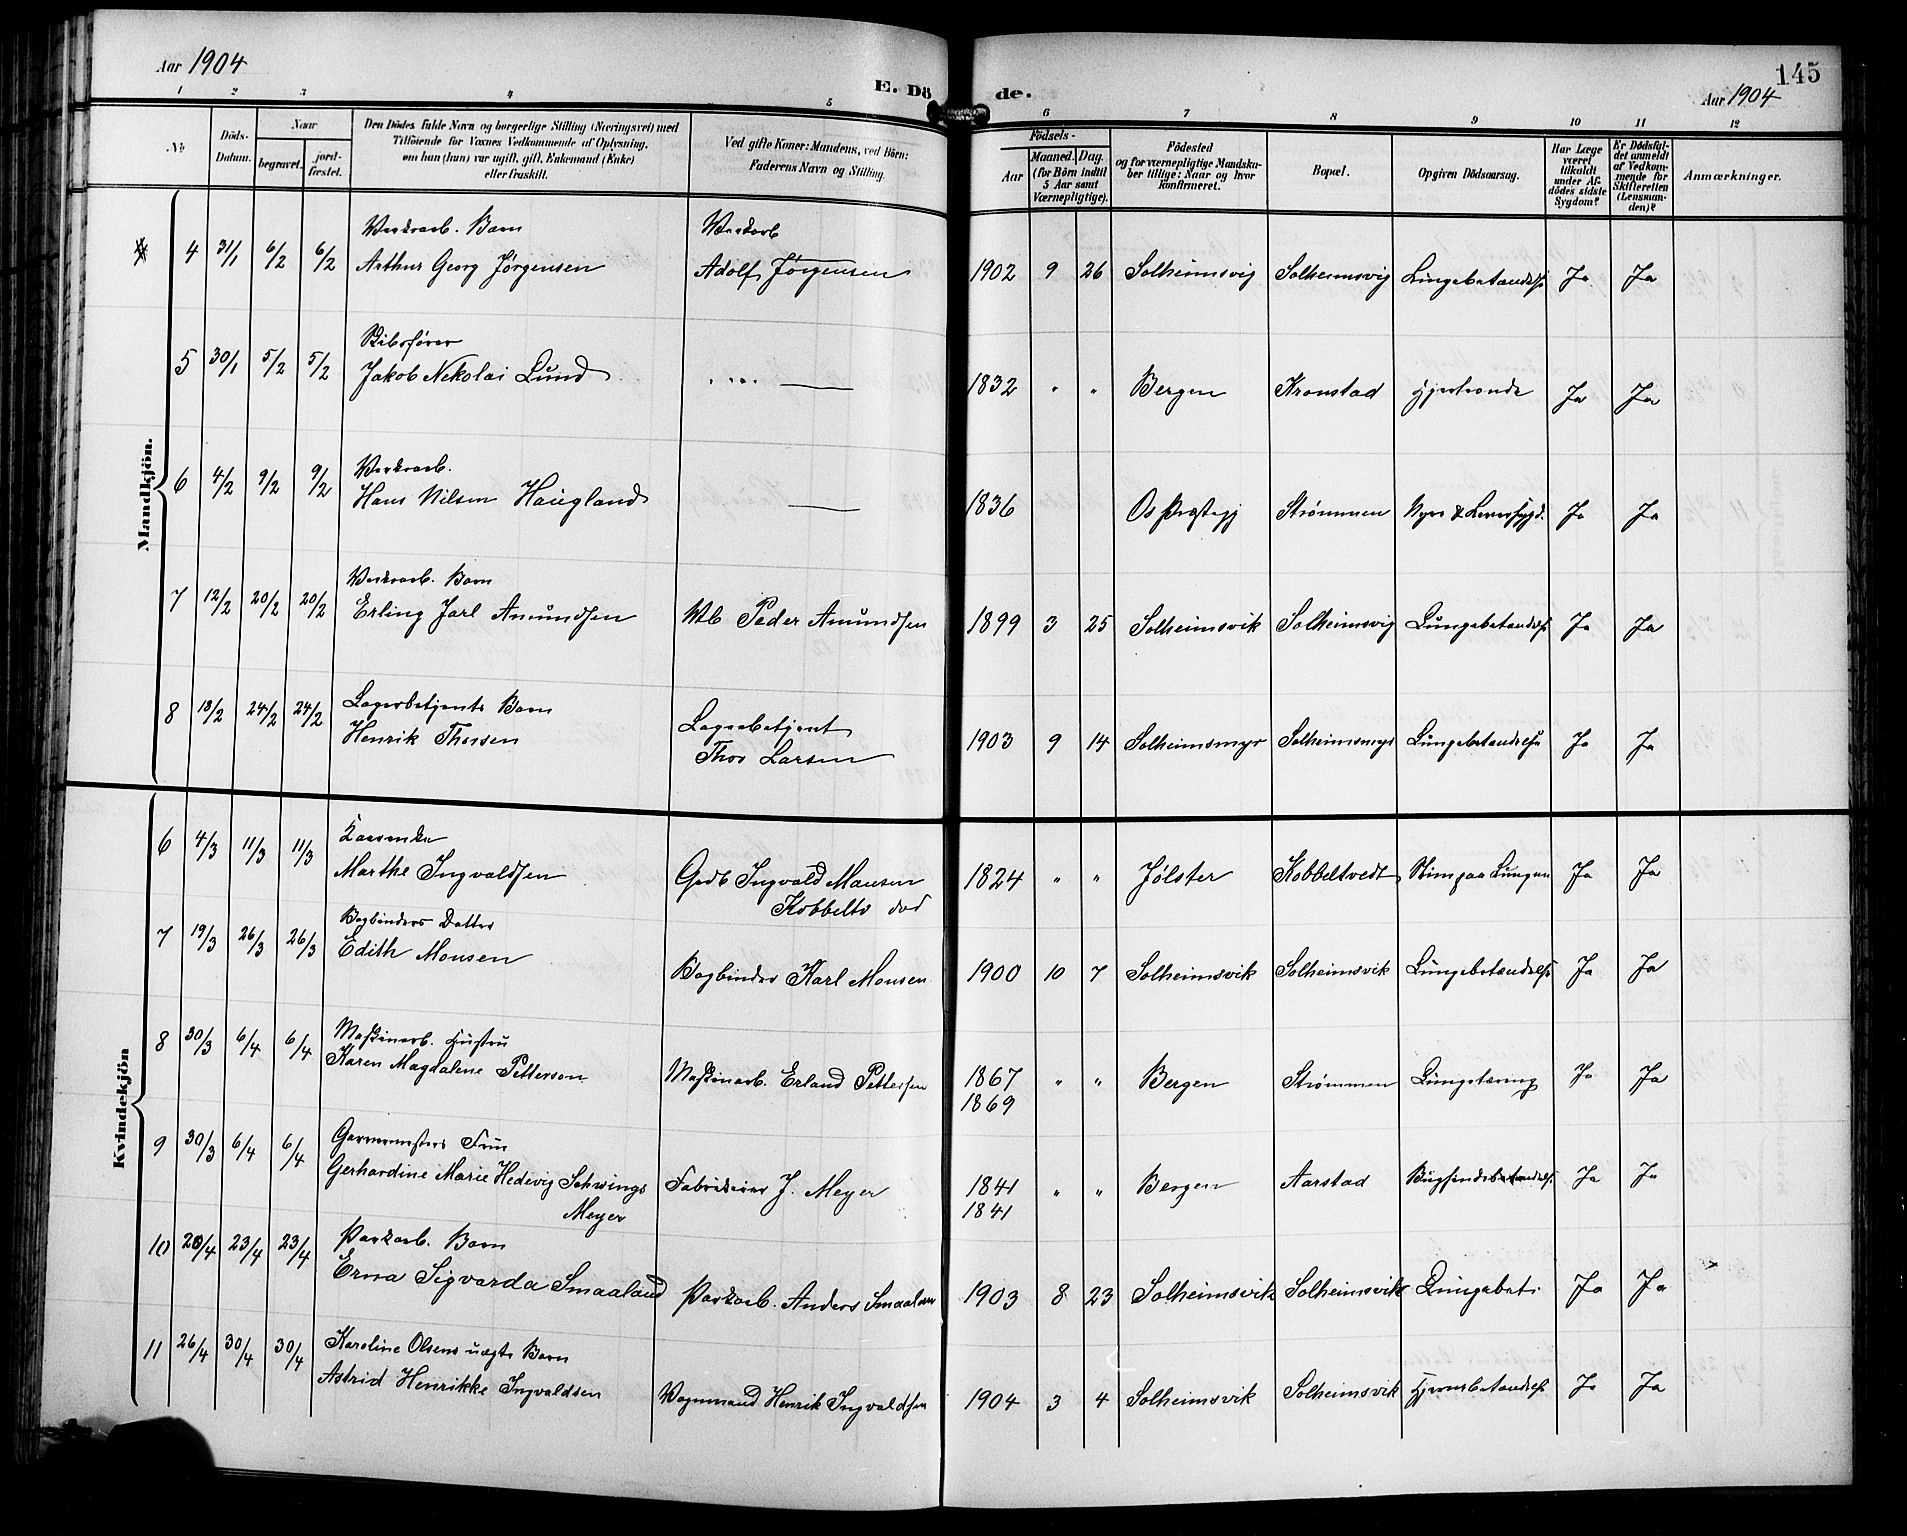 Aar 1904
E. Dö
de.
145
Aar 1904
1 2 3 4 5 6 7 8 9 10 11 12
No
Döds-
Datum.
Naar
begravet.
jord-
fæstet.
Den Dödes fulde Navn og borgerlige Stilling (Næringsvei) med
Tilföiende for Voxnes Vedkommende af Oplysning,
om han (hun) var ugift, gift, Enkemand (Enke)
eller fraskilt.
Ved gifte Koner: Mandens, ved Börn:
Faderens Navn og Stilling.
Födsels-
Aar
Maaned. Dag.
(for Börn indtil
5 Aar samt
Værnepligtige).
Födested
og for værnepligtige Mandska-
ber tillige: Naar og hvor
konfirmeret.
Bopæl.
Opgiven Dödsaarsag.
Har Læge
været
tilkaldt
under Af-
dödes sidste
Sygdom?
Er Dödsfal-
det anmeldt
af Vedkom-
mende for
Skifteretten
(Lensman-
den)?
Anmærkninger.
Mandkjön.
Værksarb. Barn
Værksarb
4 31/1 6/2 6/2 Arthur Georg Jørgensen Adolf Jørgensen 1902 9 26 Solheimsvig Solheimsvig Lungebetændelse Ja Ja
Skibsfører
5 30/1 5/2 5/2 Jakob Nekolai Lund " " " — 1832 " " Bergen Kronstad Hjerteonde Ja Ja
Værksarb.
6 4/2 9/2 9/2 Hans Nilsen Haugland — 1836 Os Præstegj Strømmen Nyre & Leversygd. Ja Ja
Værksarb. Barn
7 12/2 20/2 20/2 Erling Jarl Amundsen Peder Amundsen 1899 3 25 Solheimsvik Solheimsvig Lungebetændelse Ja Ja
Lagerbetjents Barn
8 18/2 24/2 24/2 Henrik Thorsen Lagerbetjent
Thor Larsen 1903 9 14 Solheimsmyr Solheimsmyr Lungebetændelse Ja Ja
Kvindekjön
6 4/3 11/3 11/3 Marthe Ingvaldsen Gdb Ingvald Monsen
Kobbeltv død 1824 " " Jølster Kobbeltvedt Slim paa Lungen Ja Ja
Bogbinders Datter
7 19/3 26/3 26/3 Edith Monsen Bogbinder Karl Monsen 1900 10 7 Solheimsvik Solheimsvik Lungebetændelse Ja Ja
Maskinarb. Hustru
8 30/3 6/4 6/4 Karen Magdalene Petterson Maskinarb. Erland Pettersen 1867 " " Bergen Strømmen Lungetæring Ja Ja
1869
Garvermesters Frue
9 30/3 6/4 6/4 Gerhardine Marie Hedevig Schwings
Meyer Fabrikeier J. Meyer 1841 " " Bergen Aarstad Bughindebetændelse Ja Ja
1841
Parkarb. Barn
10 20/4 23/4 23/4 Erna Sigvarda Smaaland Parkarb. Anders Smaaland 1903 8 23 Solheimsvik Solheimsvik Lungebet. Ja Ja
Karoline Olsens uægte Barn
11 26/4 30/4 30/4 Astrid Henrikke Ingvaldsen Vognmand Henrik Ingvaldsen 1904 3 4 Solheimsvik Solheimsvik Hjernebetændelse Ja Ja